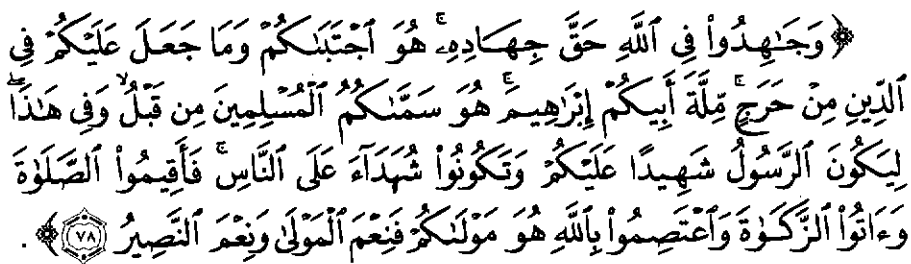 ﴿وَجَٰهِدُوا۟ فِى ٱللَّهِ حَقَّ جِهَادِهِۦ ۚ هُوَ ٱجْتَبَىٰكُمْ وَمَا جَعَلَ عَلَيْكُمْ فِى
ٱلدِّينِ مِنْ حَرَجٍ ۚ مِّلَّةَ أَبِيكُمْ إِبْرَٰهِيمَ ۚ هُوَ سَمَّىٰكُمُ ٱلْمُسْلِمِينَ مِن قَبْلُ وَفِى هَٰذَا
لِيَكُونَ ٱلرَّسُولُ شَهِيدًا عَلَيْكُمْ وَتَكُونُوا۟ شُهَدَآءَ عَلَى ٱلنَّاسِ ۚ فَأَقِيمُوا۟ ٱلصَّلَوٰةَ
وَءَاتُوا۟ ٱلزَّكَوٰةَ وَٱعْتَصِمُوا۟ بِٱللَّهِ هُوَ مَوْلَىٰكُمْ فَنِعْمَ ٱلْمَوْلَىٰ وَنِعْمَ ٱلنَّصِيرُ ٧٨﴾ .